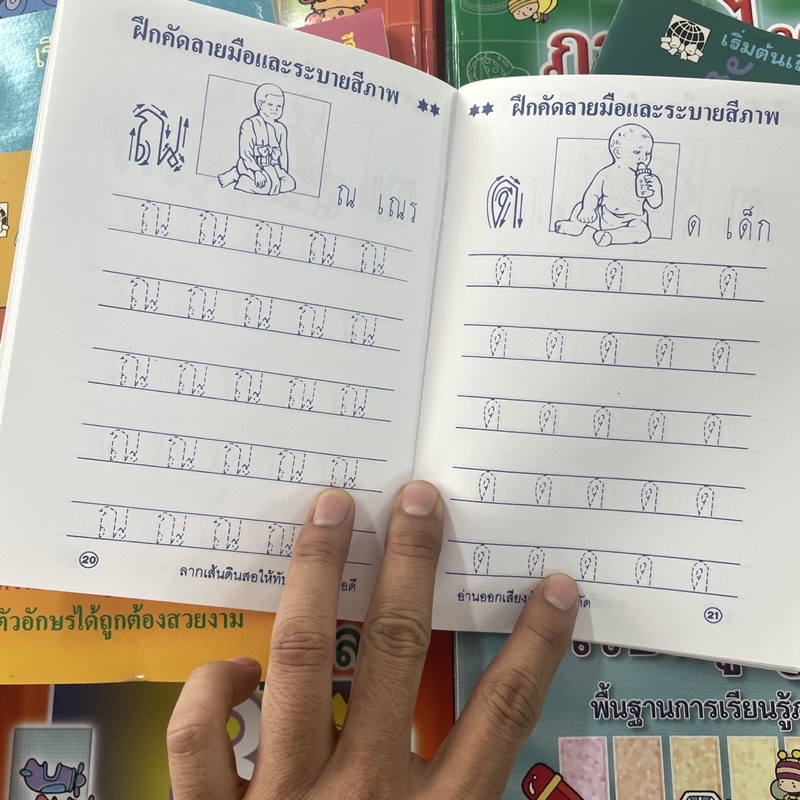 ฝึกคัดลายมือและระบายสีภาพ
ณ
ณ เณร
ณ ณ ณ ณ ณ
ณ ณ ณ ณ ณ
ณ ณ ณ ณ ณ
ณ ณ ณ ณ ณ
ณ ณ ณ ณ
ลากเส้นดินสอให้ทับ
20
ฝึกคัดลายมือและระบายสีภาพ
ด
ด เด็ก
ด ด ด ด ด
ด ด ด ด ด
ด ด ด ด ด
ด ด ด ด ด
ด ด ด ด ด
อ่านออกเสียง
21
เริ่มต้น
ตัวอักษรได้ถูกต้องสวยงาม
พื้นฐานการเรียนรู้